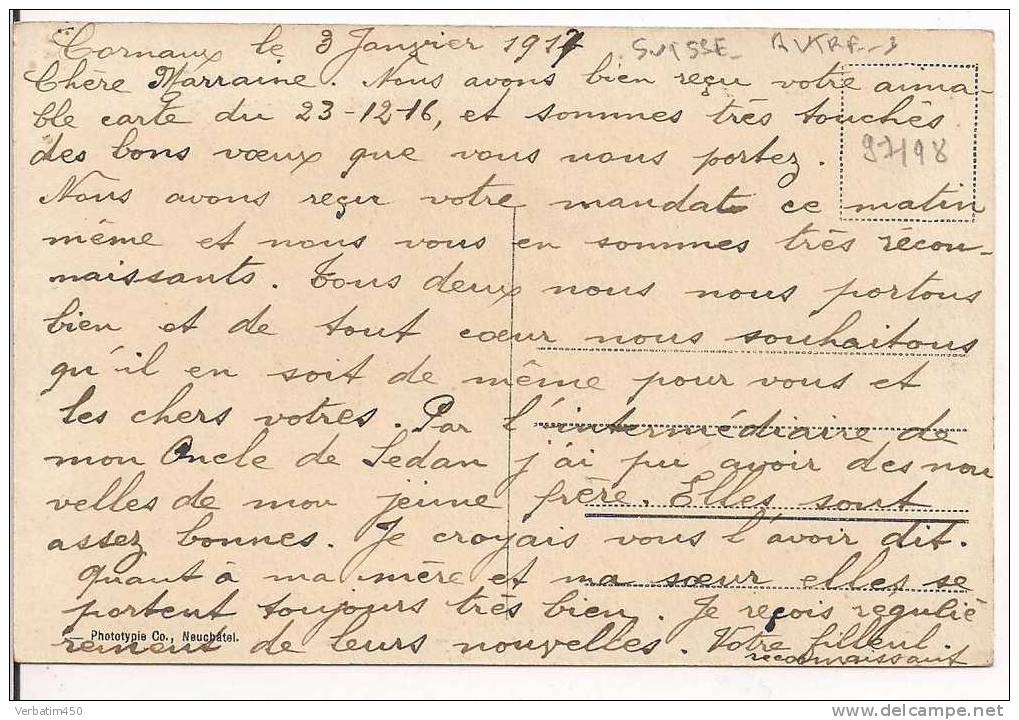 Cornaux le 3 Janvier 1917
SUISSE
Chère Marraine. Nous avons bien reçu votre aima-
ble carte du 23-12-16, et sommes très touchés
des bons vœux que vous nous portez.
97198
Nous avons reçu votre mandat ce matin
même et nous vous en sommes très récon-
naissants. Tous deux nous nous portons
bien et de tout cœur nous souhaitons
qu'il en soit de même pour vous et
les chers votres. Par l'intermédiaire de
mon Oncle de Sedan j'ai pu avoir des nou
velles de mon jeune frère. Elles sont
assez bonnes. Je croyais vous l'avoir dit.
Quant à ma mère et ma sœur elles se
portent toujours très bien. Je reçois regulié
rement de leurs nouvelles. Votre filleul.
reconnaissant
Phototypie Co., Neuchâtel.
Verbatim450
www.delcampe.net